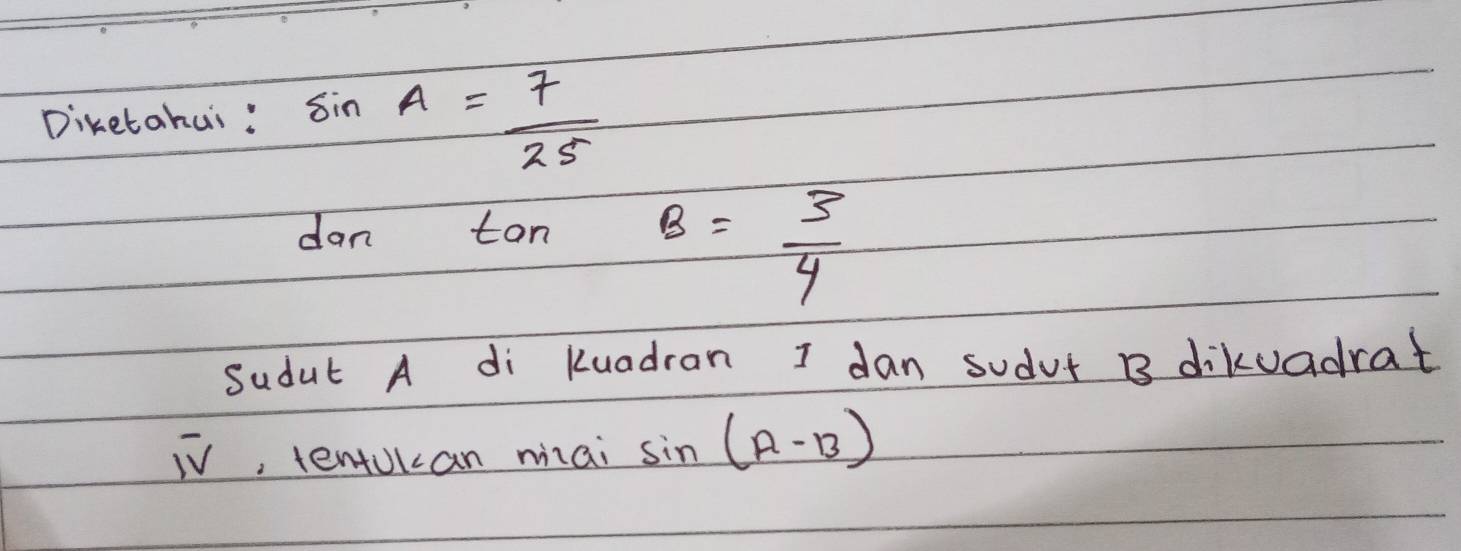 Diketahui : Sin A = 7/25
dan tan B = 3/4
Sudut A di kuadran I dan sudut B dikuadrat
IV, tentukan nilai sin (A-B)